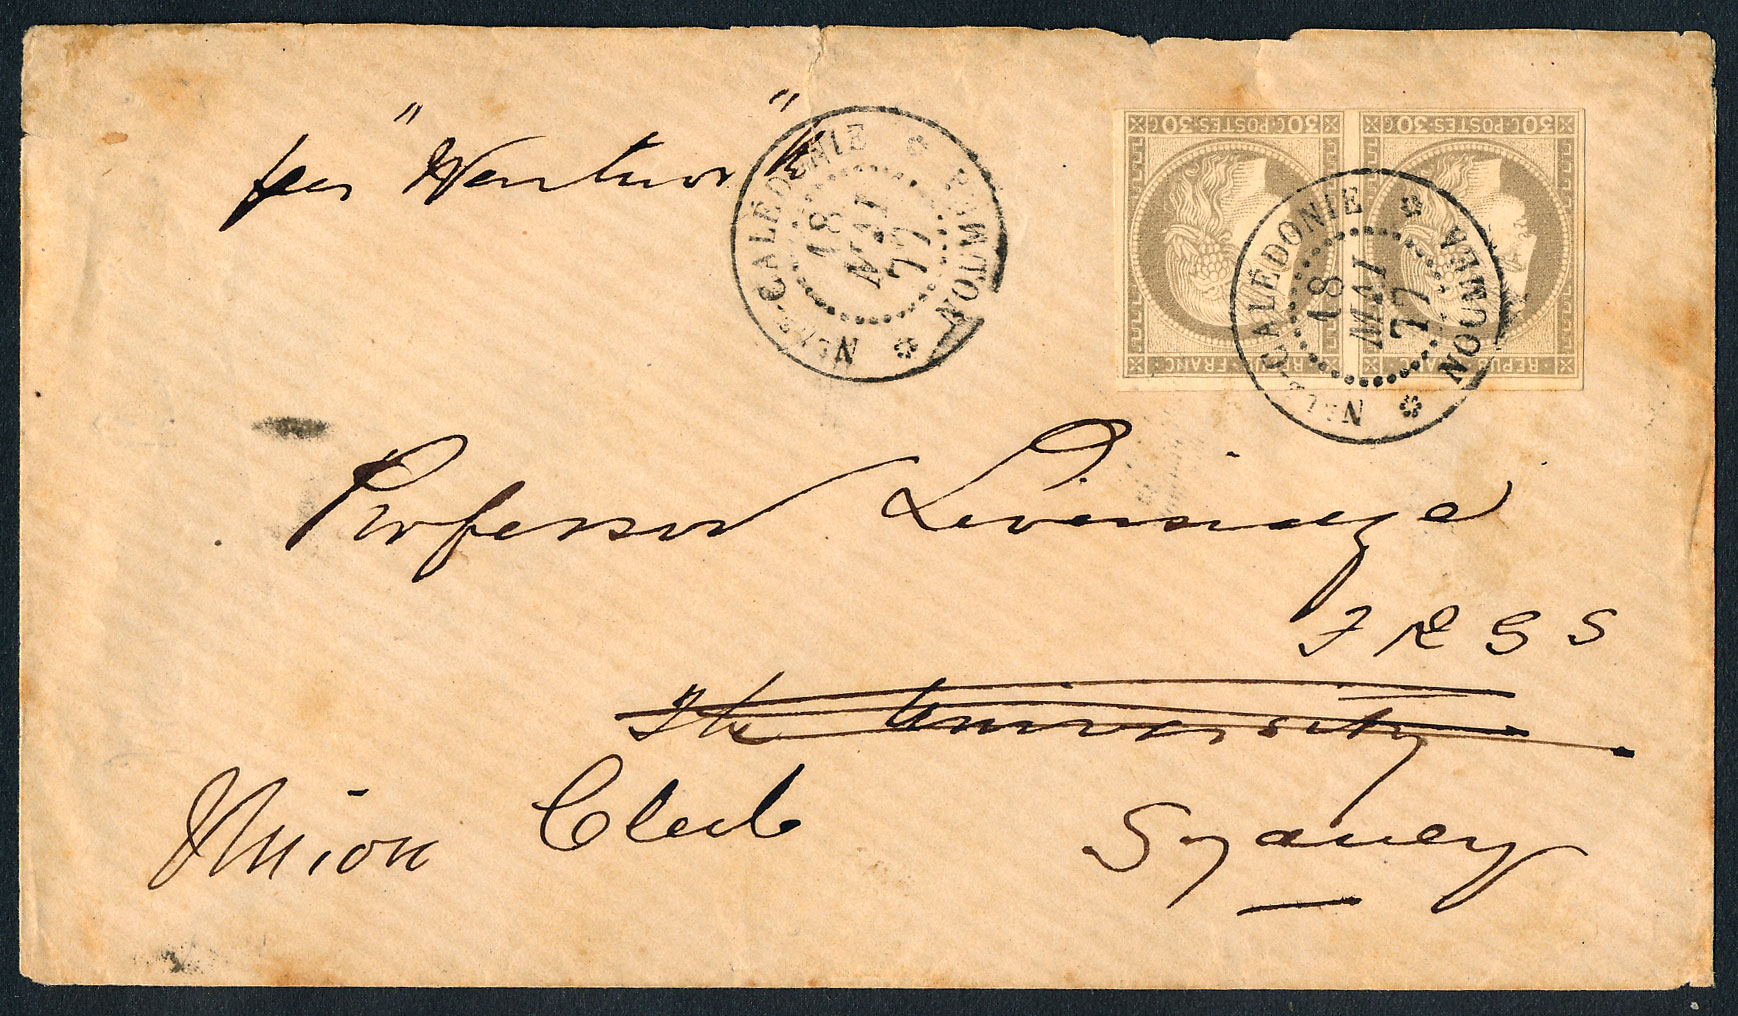 per "Wentworth"
Nelle CALÉDONIE * PAMTON *
18
MAI
77
30 C. POSTES. 30 C
30 C. POSTES. 30 C
REPUB. FRANC.
REPUB. FRANC.
Nelle CALÉDONIE * NOUMEA *
18
MAI
77
Professor Liversidge
F R G S
The University
Union Club
Sydney